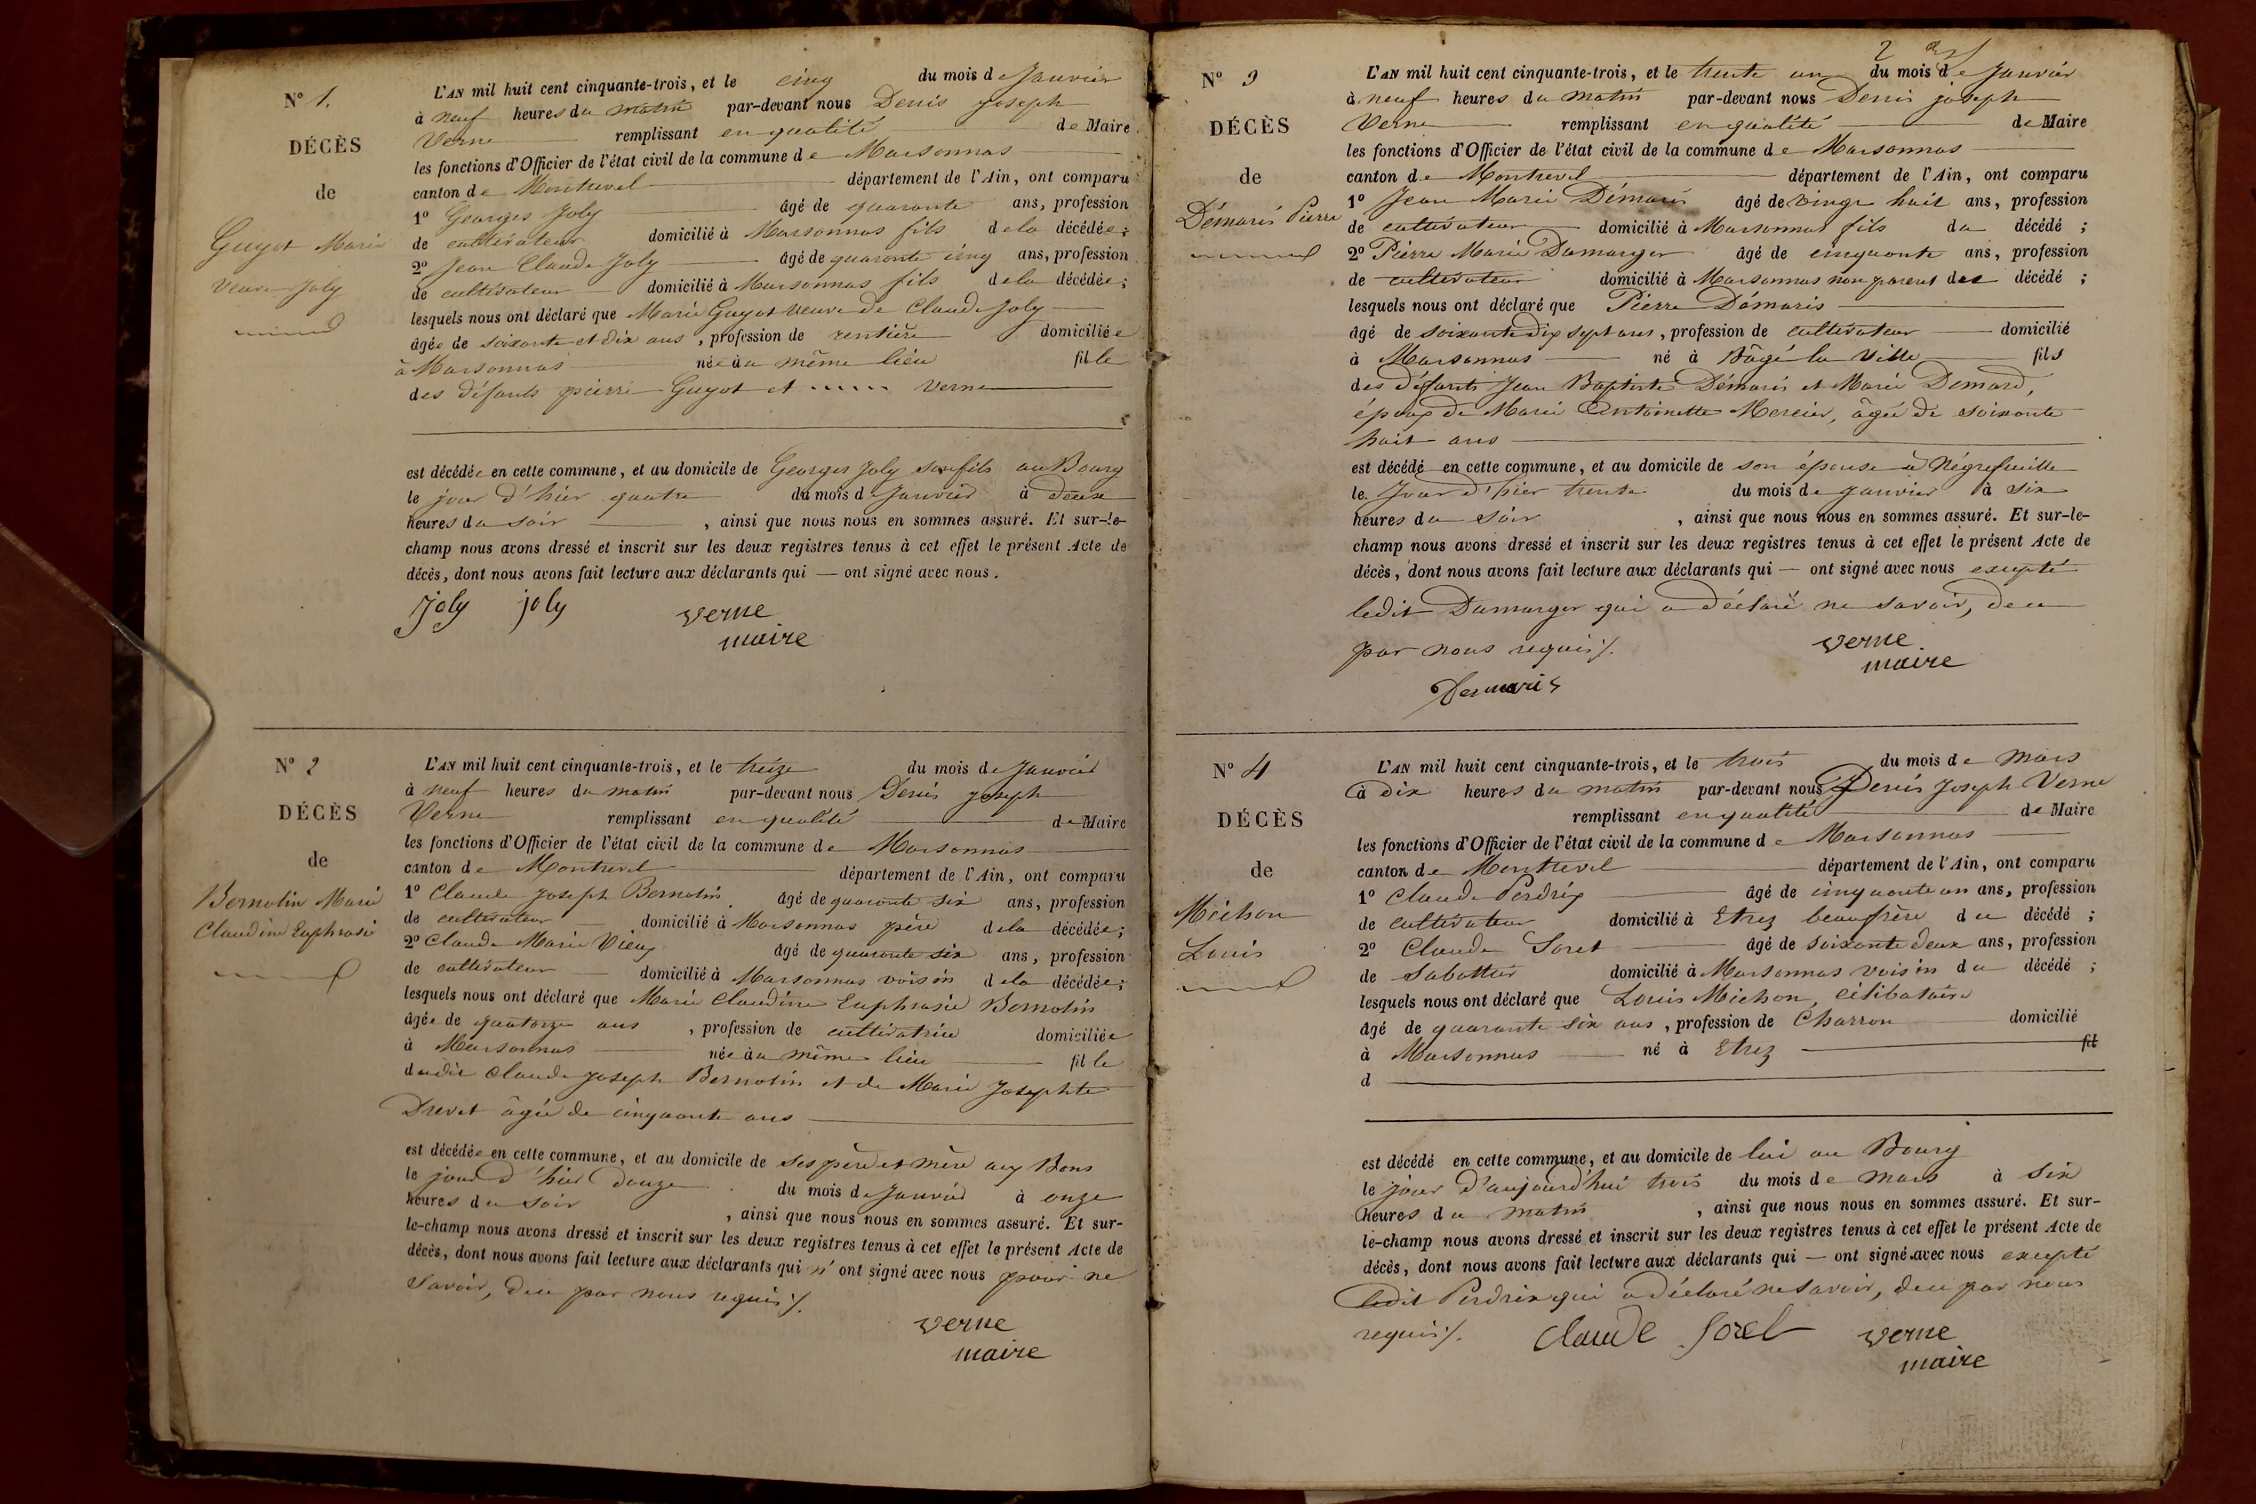 N° 1.
DÉCÈS
de
Guyot Marie
veuve Joly
L'AN mil huit cent cinquante-trois, et le cinq du mois de Janvier
à neuf heures du matin par-devant nous Denis Joseph
Verne remplissant en qualité de Maire
les fonctions d'Officier de l'état civil de la commune de Marsonnas
canton de Montrevel département de l'Ain, ont comparu
1° Georges Joly âgé de quarante ans, profession
de cultivateur domicilié à Marsonnas fils de la décédée;
2° Jean Claude Joly âgé de quarante cinq ans, profession
de cultivateur domicilié à Marsonnas fils de la décédée;
lesquels nous ont déclaré que Marie Guyot veuve de Claude Joly
âgée de soixante et dix ans, profession de rentière domiciliée
à Marsonnas née au même lieu fille
des défunts pierre Guyot et ..... Verne
est décédée en cette commune, et au domicile de Georges Joly son fils au Bourg
le jour d'hier quatre du mois de Janvier à deux
heures du soir, ainsi que nous nous en sommes assuré. Et sur-le-
champ nous avons dressé et inscrit sur les deux registres tenus à cet effet le présent Acte de
décès, dont nous avons fait lecture aux déclarants qui — ont signé avec nous.
Joly joly verne
maire
N° 2
DÉCÈS
de
Bernolin Marie
Claudine Euphrasie
L'AN mil huit cent cinquante-trois, et le treize du mois de Janvier
à neuf heures du matin par-devant nous Denis Joseph
Verne remplissant en qualité de Maire
les fonctions d'Officier de l'état civil de la commune de Marsonnas
canton de Montrevel département de l'Ain, ont comparu
1° Claude Joseph Bernolin âgé de quarante six ans, profession
de cultivateur domicilié à Marsonnas père de la décédée;
2° Claude Marie Vieux âgé de quarante six ans, profession
de cultivateur domicilié à Marsonnas voisin de la décédée;
lesquels nous ont déclaré que Marie Claudine Euphrasie Bernolin
âgée de quatorze ans, profession de cultivatrice domiciliée
à Marsonnas née au même lieu fille
dudit Claude Joseph Bernolin et de Marie Josephte
Drevet âgée de cinquante ans
est décédée en cette commune, et au domicile de ses père et mère aux Bons
le jour d'hier douze du mois de Janvier à onze
heures du soir, ainsi que nous nous en sommes assuré. Et sur-
le-champ nous avons dressé et inscrit sur les deux registres tenus à cet effet le présent Acte de
décès, dont nous avons fait lecture aux déclarants qui n'ont signé avec nous pour ne
savoir, de ce par nous requis ./.
verne
maire
2
N° 3
DÉCÈS
de
Démaris Pierre
L'AN mil huit cent cinquante-trois, et le trente un du mois de Janvier
à neuf heures du matin par-devant nous Denis joseph
Verne remplissant en qualité de Maire
les fonctions d'Officier de l'état civil de la commune de Marsonnas
canton de Montrevel département de l'Ain, ont comparu
1° Jean Marie Démaris âgé de vingt huit ans, profession
de cultivateur domicilié à Marsonnas fils du décédé;
2° Pierre Marie Damarger âgé de cinquante ans, profession
de cultivateur domicilié à Marsonnas non parent du décédé;
lesquels nous ont déclaré que Pierre Démaris
âgé de soixante dix sept ans, profession de cultivateur domicilié
à Marsonnas né à Bâgé la Ville fils
des défunts Jean Baptiste Démaris et Marie Demard,
époux de Marie Antoinette Mercier, âgée de soixante
huit ans
est décédé en cette commune, et au domicile de son épouse à Négrefeuille
le Jour d'hier trente du mois de janvier à six
heures du soir, ainsi que nous nous en sommes assuré. Et sur-le-
champ nous avons dressé et inscrit sur les deux registres tenus à cet effet le présent Acte de
décès, dont nous avons fait lecture aux déclarants qui — ont signé avec nous excepté
ledit Damarger qui a déclaré ne savoir, de ce
par nous requis ./. verne
maire
Desmaris
N° 4
DÉCÈS
de
Michon
Louis
L'AN mil huit cent cinquante-trois, et le trois du mois de Mars
à dix heures du matin par-devant nous Denis Joseph Verne
remplissant en qualité de Maire
les fonctions d'Officier de l'état civil de la commune de Marsonnas
canton de Montrevel département de l'Ain, ont comparu
1° Claude Perdrix âgé de cinquante un ans, profession
de cultivateur domicilié à Etrez beaufrère du décédé;
2° Claude Soret âgé de soixante deux ans, profession
de Sabottier domicilié à Marsonnas voisin du décédé;
lesquels nous ont déclaré que Louis Michon, célibataire
âgé de quarante six ans, profession de Charron domicilié
à Marsonnas né à Etrez fil
d
est décédé en cette commune, et au domicile de lui au Bourg
le jour d'aujourd'hui trois du mois de Mars à six
heures du matin, ainsi que nous nous en sommes assuré. Et sur-
le-champ nous avons dressé et inscrit sur les deux registres tenus à cet effet le présent Acte de
décès, dont nous avons fait lecture aux déclarants qui — ont signé avec nous excepté
ledit Perdrix qui a déclaré ne savoir, de ce par nous
requis ./. Claude Soret verne
maire